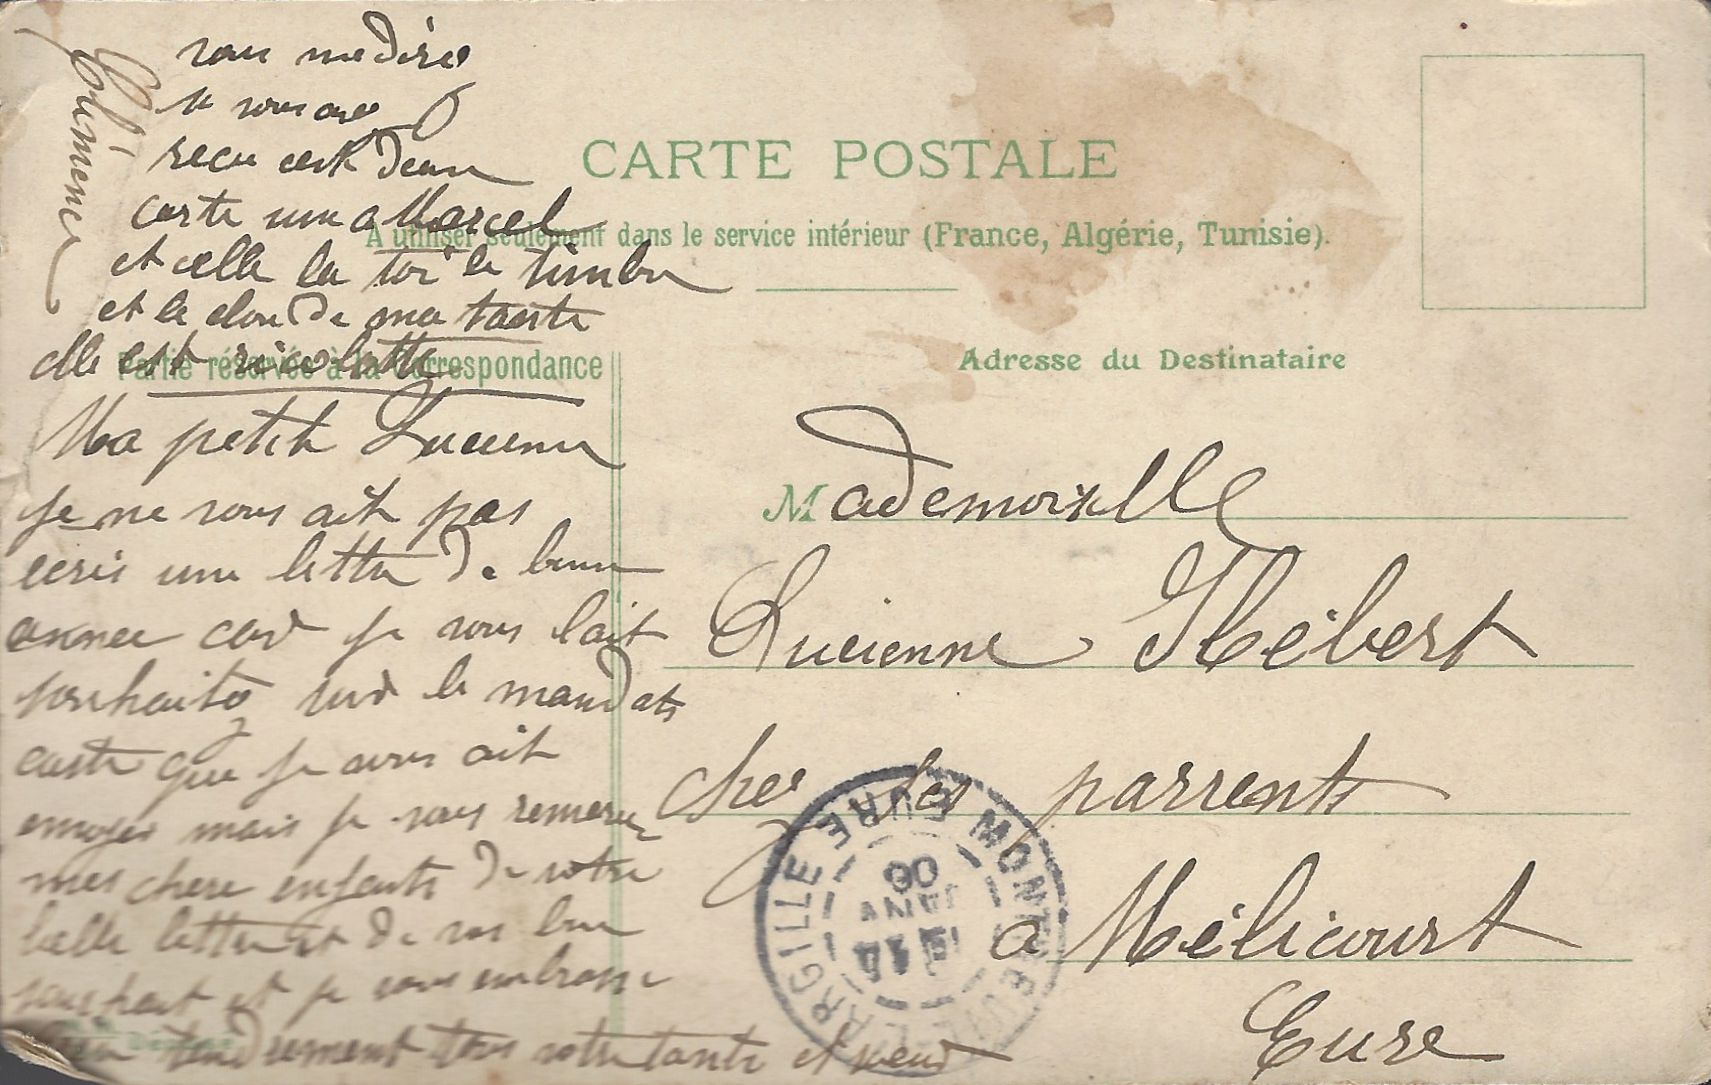 vous me direz
si vous avez
recu cest deux
carte une a Marcel
et celle la toi le timbre
et le clou de ma tante
elle est violette
Clémence
CARTE POSTALE
A utiliser seulement dans le service intérieur (France, Algérie, Tunisie).
Partie réservée à la Correspondance
Adresse du Destinataire
Ma petite Lucienne
je ne vous ait pas
ecris une lettre de bonne
annee card je vous lait
souhaitez surd le mandats
carte que je vous ait
envoyer mais je vous remerci
mes chere enfants de votre
belle lettre et de vos bon
souhait et je vous embrasse
bien tendrement tous votre tante
Mademoiselle
Lucienne Hébert
chez ses parrents
a Mélicourt
Eure
MONTREUIL L'ARGILLE EURE
14
JANV
06